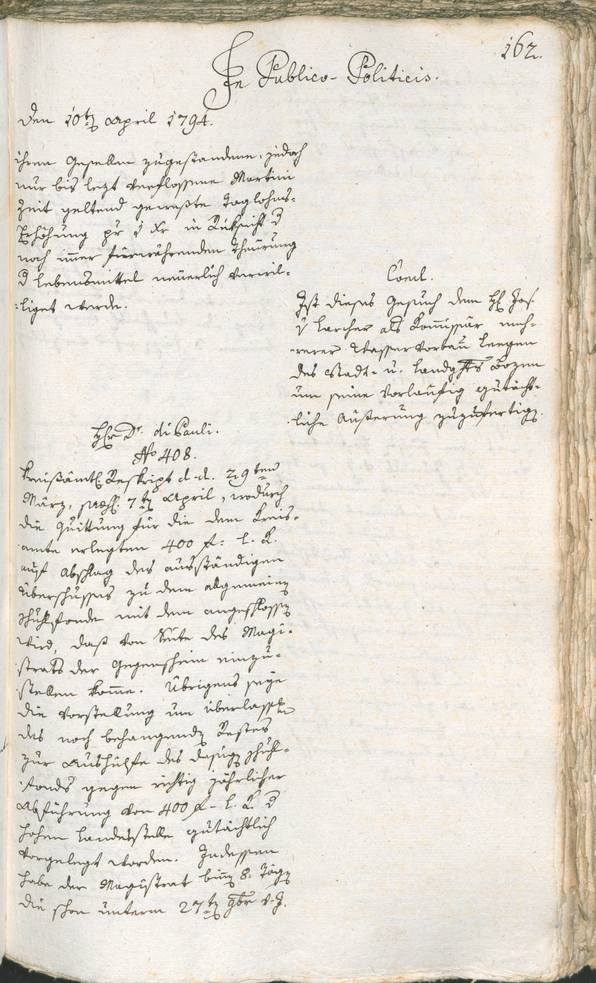 162.
In Publico-Politicis.
den 10ten April 1794.
ihren Gesellen zugestandene, jedoch
nur bis letzt verflossene Martini
Zeit geltend geweßte Taglohns-
Erhöhung pr 2 Xr in Rüksicht d
noch imer fürwährenden Theürung
d Lebensmittel neüerlich verwil-
liget werde.
Concl.
Ist dieses Gesuch dem H Jos.
v Larcher als Komißär meh-
rerer Wasservorbau Leegen
des Stadt- u. Landghts Bozen
um seine vorlaüfig gutächt-
liche Aüßerung zuzufertigen.
Hr Dr. di Pauli.
No 408.
Kreisämtl Reskript d. d. 29ten
März, præs. 7ten April, wodurch
die Quittung für die dem Kreis-
amte erlegten 400 f. l. K.
auf Abschlag des ausständigen
Überschusses zu dem allgemeinen
Schulfonde mit dem angeschlossen
wird, daß von Seite des Magi-
strats der Gegenschein einzu-
stellen kome. Übrigens seye
die Vorstellung um Überlassung
des noch behangenden Restes
zur Aushülfe des dasigen Schul-
fonds gegen richtig jährlicher
Abführung von 400 f. l. K. d
hohen Landesstelle gutächtlich
vorgelegt worden. Indessen
habe der Magistrat binen 8. Tägen
die schon unterm 27ten 9ber v. J.